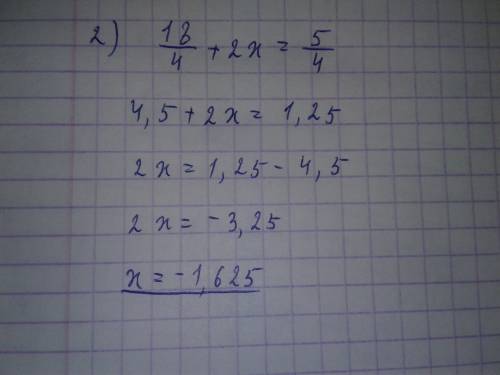 2) 18/4 + 2x = 5/4
4,5 + 2x = 1,25
2x = 1,25 - 4,5
2x = -3,25
x = -1,625